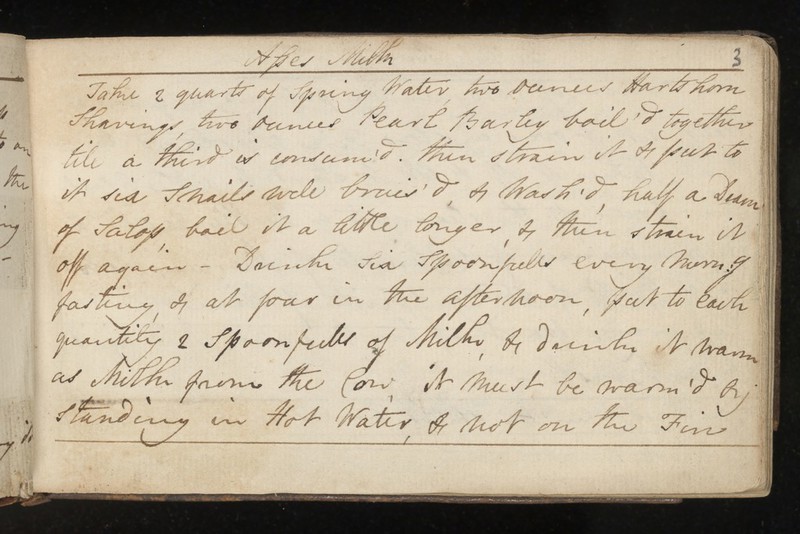 Asses Milk
3
Take 2 quarts of Spring Water, two ounces Hartshorn
Shavings, two ounces Pearl Barley boil'd together
till a third is consum'd. then strain it & put to
it six Snails well bruis'd, & Wash'd, half a Dram
of Salop, boil it a little longer, & then strain it
off again - Drink six Spoonfulls every Morng
fasting, & at four in the afternoon, put to each
quantity 2 Spoonfulls of Milk, & drink it warm
as Milk from the Cow, it must be warm'd by
standing in Hot Water, & not on the Fire